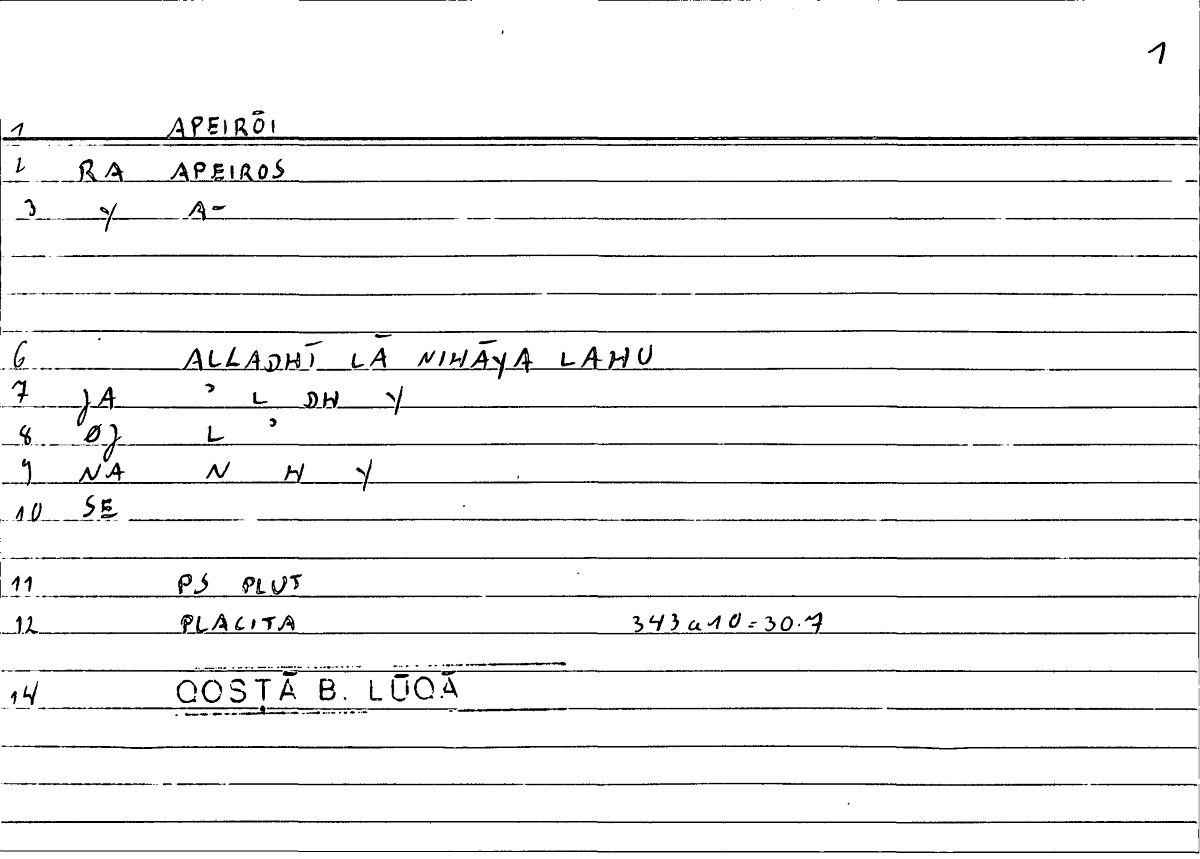 1
1 APEIRŌI
2 RA APEIROS
3 Y A-
6 ALLADHĪ LĀ NIHĀYA LAHU
7 JA ʾ L DH Y
8 ØJ L ʾ
9 NA N H Y
10 SE
11 PS PLUT
12 PLACITA 343a10=30.7
14 QOSṬĀ B. LŪQĀ